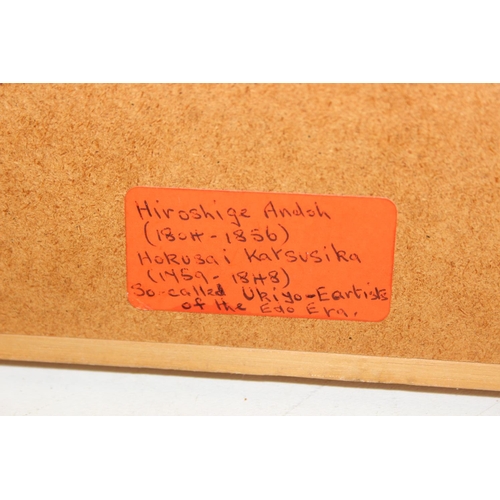 Hiroshige Andoh
(1804-1856)
Hokusai Katsusika
(1759-1848)
So called Ukiyo-Eartists
of the Edo Era.